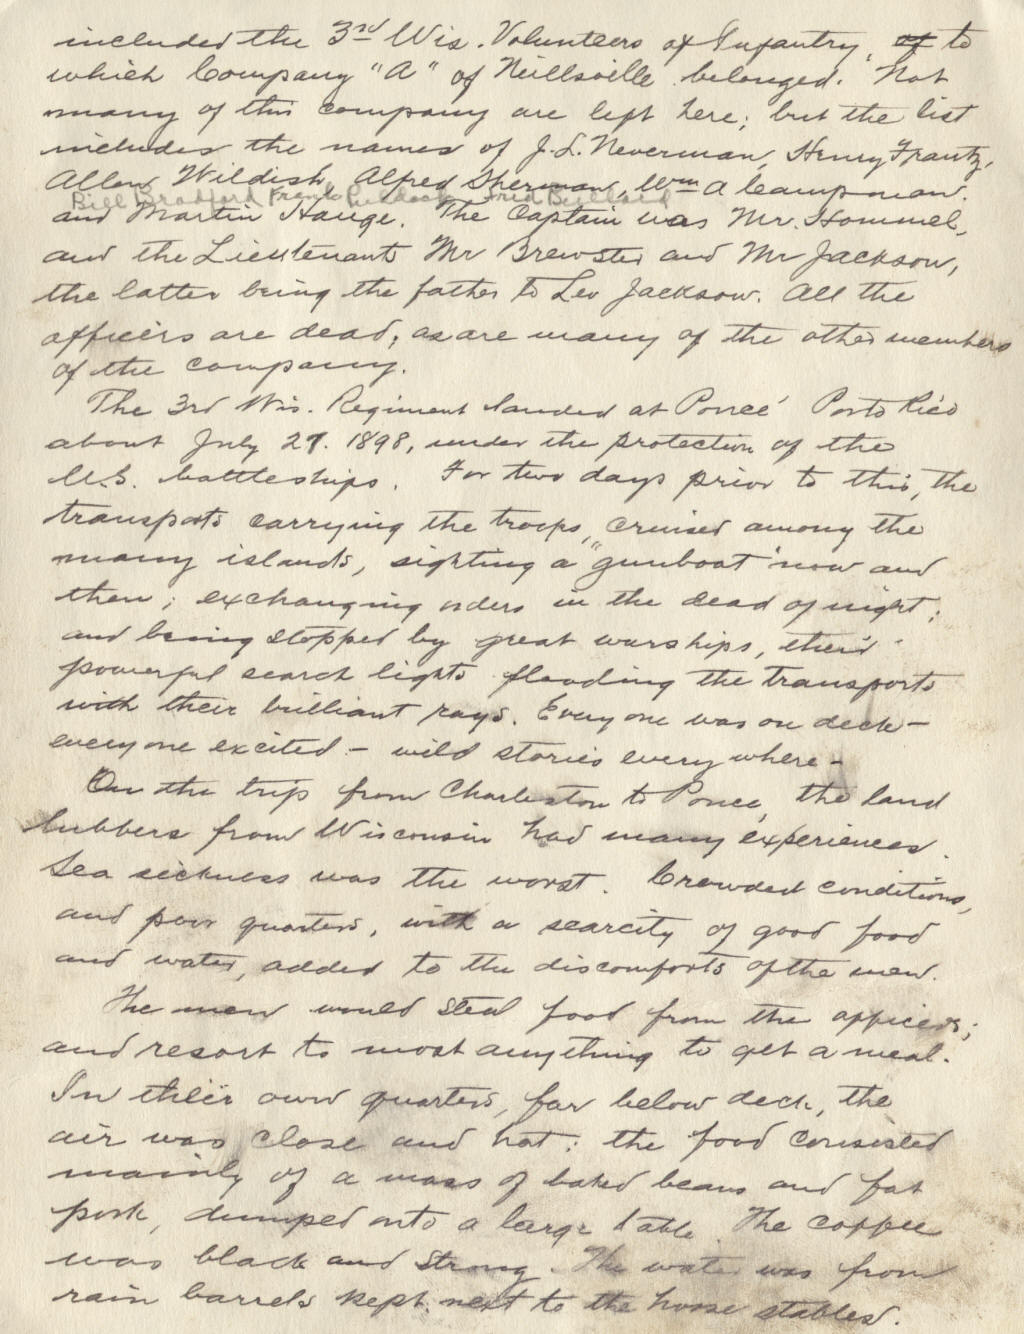 included the 3rd Wis. Volunteers of Infantry, of to
which Company "A" of Neillsville belonged. Not
many of this company are left here; but the list
includes the names of J.L. Neverman, Henry Frantz,
Allen Wildish, Alfred Sherman, Wm A Campman.
Bill Bradford Frank Fred Bullard
and Martin Hauge. The Captain was Mr. Hommel,
and the Lieutenants Mr Brewster and Mr Jackson,
the latter being the father to Lev Jackson. All the
officers are dead, as are many of the other members
of the company.
The 3rd Wis. Regiment landed at Poncé Porto Rico
about July 27. 1898, under the protection of the
U.S. battleships. For two days prior to this, the
transports carrying the troops, cruised among the
many islands, sighting a "gunboat" now and
then; exchanging orders in the dead of night;
and being stopped by great warships, their
powerful search lights flooding the transports
with their brilliant rays. Every one was on deck -
every one excited - wild stories every where -
On the trip from Charleston to Ponce, the land
lubbers from Wisconsin had many experiences.
Sea sickness was the worst. Crowded conditions,
and poor quarters, with a scarcity of good food
and water, added to the discomforts of the men.
The men would steal food from the officers;
and resort to most anything to get a meal.
In their own quarters, far below deck, the
air was close and hot; the food consisted
mainly of a mass of baked beans and fat
pork, dumped onto a large table. The coffee
was black and strong. The water was from
rain barrels kept next to the horse stables.